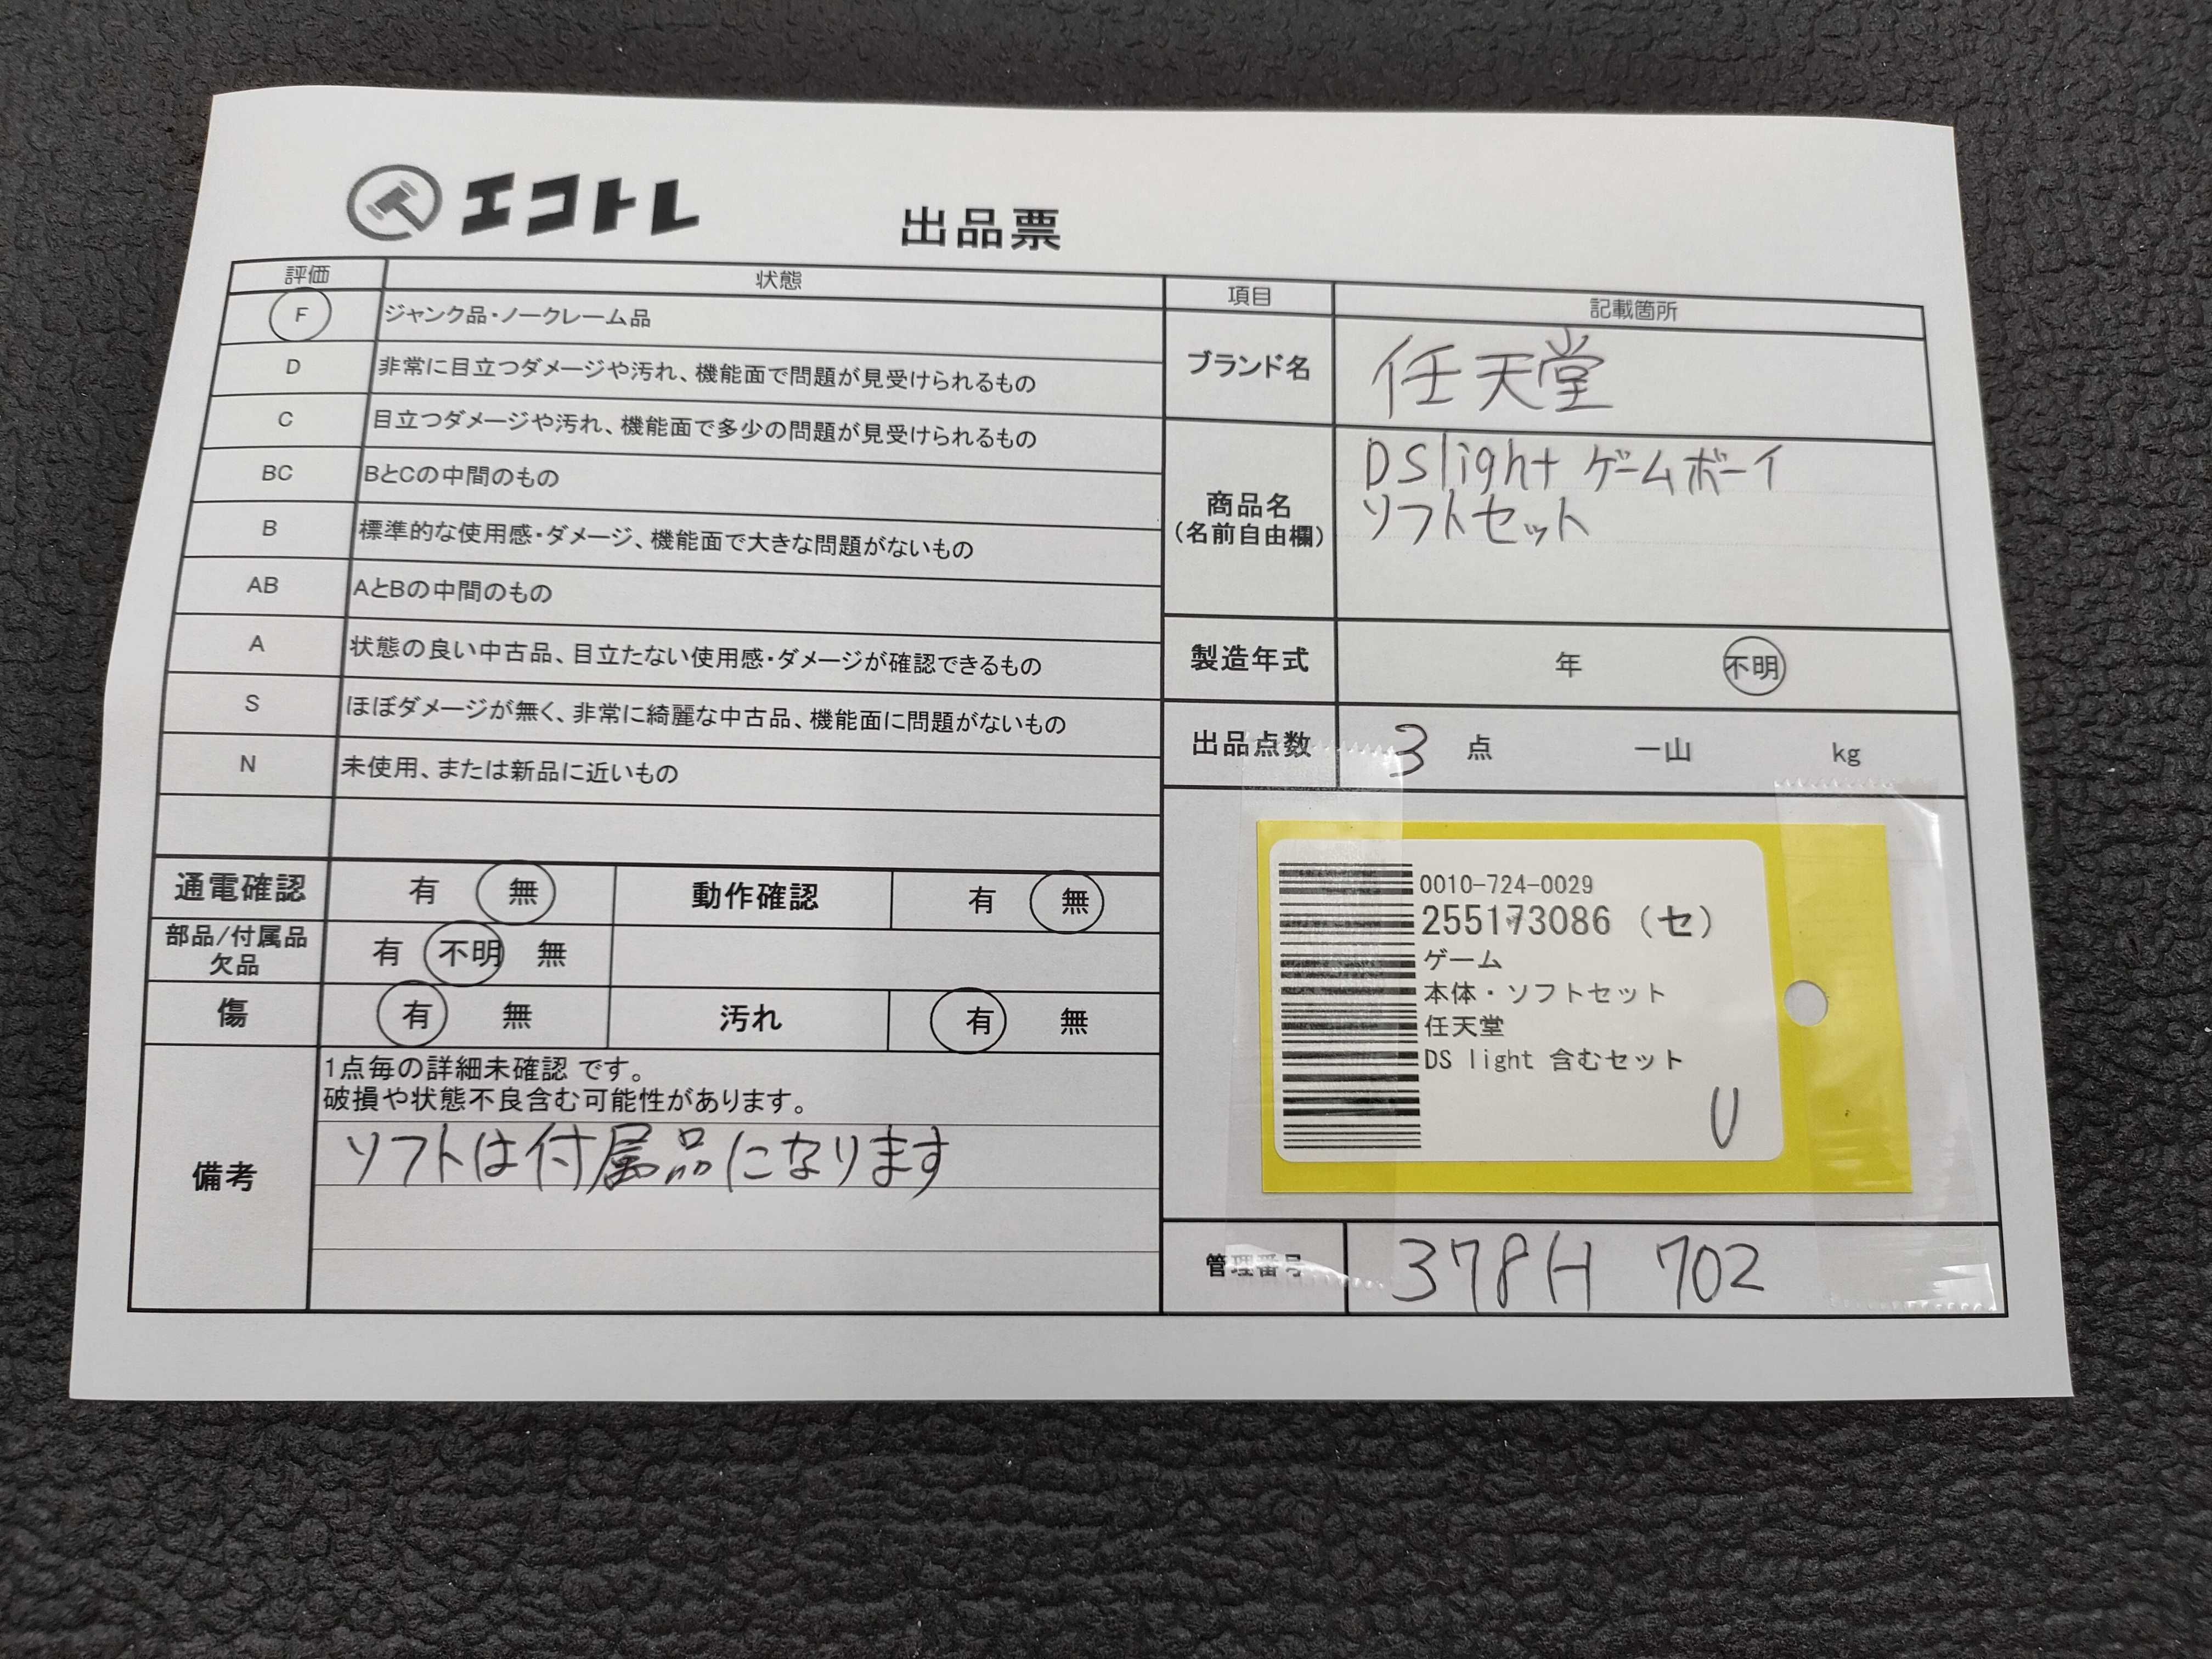 エコトレ
出品票
評価 状態
F ジャンク品・ノークレーム品
D 非常に目立つダメージや汚れ、機能面で問題が見受けられるもの
C 目立つダメージや汚れ、機能面で多少の問題が見受けられるもの
BC BとCの中間のもの
B 標準的な使用感・ダメージ、機能面で大きな問題がないもの
AB AとBの中間のもの
A 状態の良い中古品、目立たない使用感・ダメージが確認できるもの
S ほぼダメージが無く、非常に綺麗な中古品、機能面に問題がないもの
N 未使用、または新品に近いもの
通電確認 有 無 動作確認 有 無
部品/付属品
欠品 有 不明 無
傷 有 無 汚れ 有 無
備考
1点毎の詳細未確認 です。
破損や状態不良含む可能性があります。
ソフトは付属品になります
項目 記載箇所
ブランド名 任天堂
商品名
(名前自由欄)
DSlight ゲームボーイ
ソフトセット
製造年式 年 不明
出品点数 3 点 一山 kg
0010-724-0029
255173086 (セ)
ゲーム
本体・ソフトセット
任天堂
DS light 含むセット
U
管理番号 378H 702